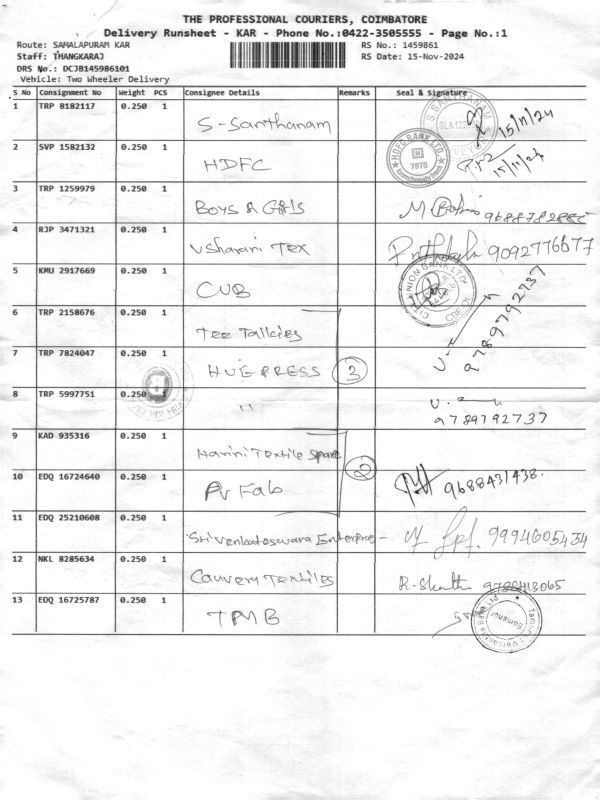 THE PROFESSIONAL COURIERS, COIMBATORE
Delivery Runsheet - KAR - Phone No.:0422-3505555 - Page No.:1
Route: SAMALAPURAM KAR RS No.: 1459861
Staff: THANGKARAJ RS Date: 15-Nov-2024
DRS No.: DCJB145986101
Vehicle: Two Wheeler Delivery
S No Consignment No Weight PCS Consignee Details Remarks Seal & Signature
1 TRP 8182117 0.250 1 S-Santhanam 15/11/24
2 SVP 1582132 0.250 1 HDFC HDFC BANK LTD. 15/11/24
3 TRP 1259979 0.250 1 Boys & Girls
4 RJP 3471321 0.250 1 Usharani Tex 9092776677
5 KMU 2917669 0.250 1 CUB 9789792737
6 TRP 2158676 0.250 1 Tee Talkies
7 TRP 7824047 0.250 1 HUE PRESS 3
8 TRP 5997751 0.250 1 " 9789792737
9 KAD 935316 0.250 1 Harini Textile 2
10 EDQ 16724640 0.250 1 PV Fab 9688431438.
11 EDQ 25210608 0.250 1 Sri Venkateswara Enterprises 9994605434
12 NKL 8285634 0.250 1 Cauvery Textiles 9788413065
13 EDQ 16725787 0.250 1 TMB